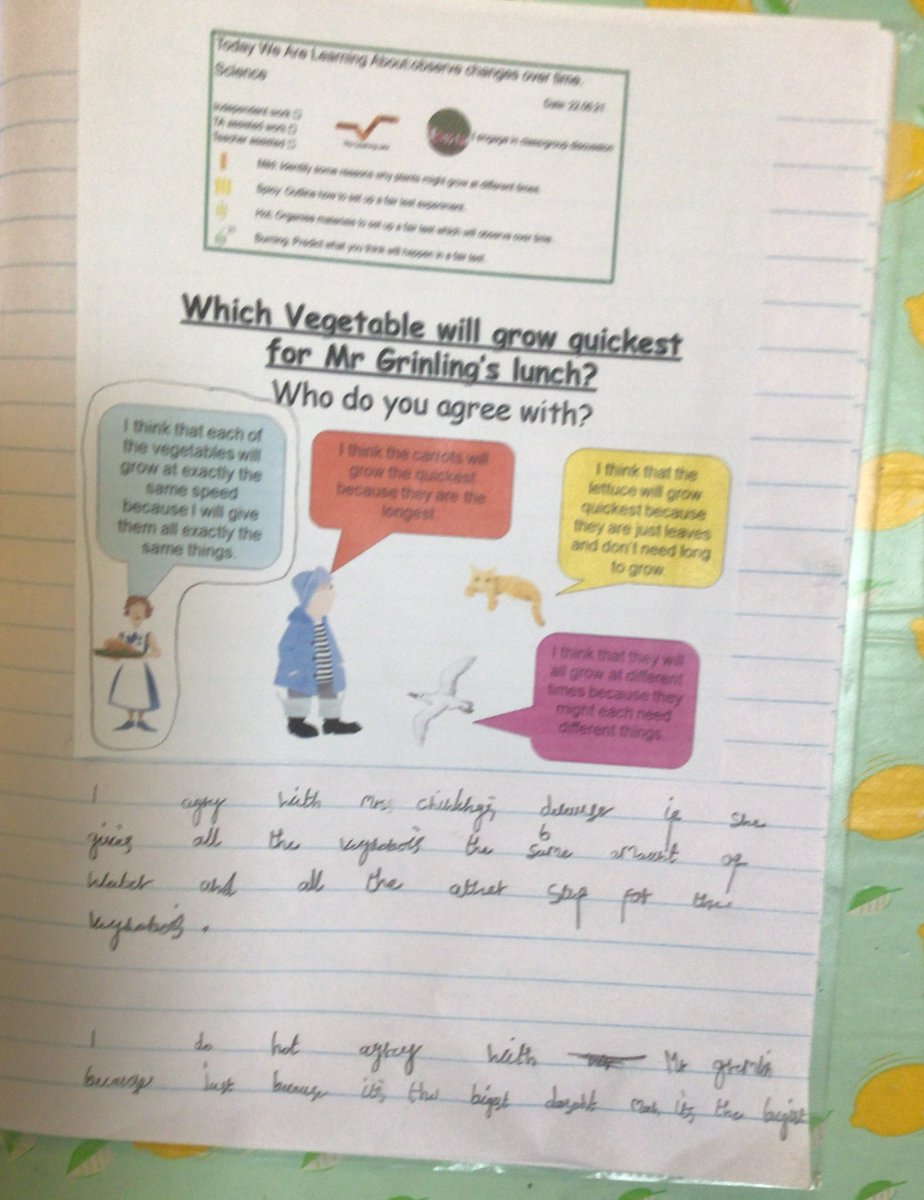 Today We Are Learning About:observe changes over time.
Science
Date: 22.06.21
Independent work
TA assisted work
Teacher assisted
I engage in class/group discussion
Mild: Identify some reasons why plants might grow at different times.
Spicy: Outline how to set up a fair test experiment.
Hot: Organise materials to set up a fair test which will observe over time.
Burning: Predict what you think will happen in a fair test.
Which Vegetable will grow quickest
for Mr Grinling's lunch?
Who do you agree with?
I think that each of
the vegetables will
grow at exactly the
same speed
because I will give
them all exactly the
same things.
I think the carrots will
grow the quickest
because they are the
longest.
I think that the
lettuce will grow
quickest because
they are just leaves
and don't need long
to grow.
I think that they will
all grow at different
times because they
might each need
different things.
I agry with Mrs if she
all the the same amount of
and all the for the
I do not agrey with Mr
just its the its the